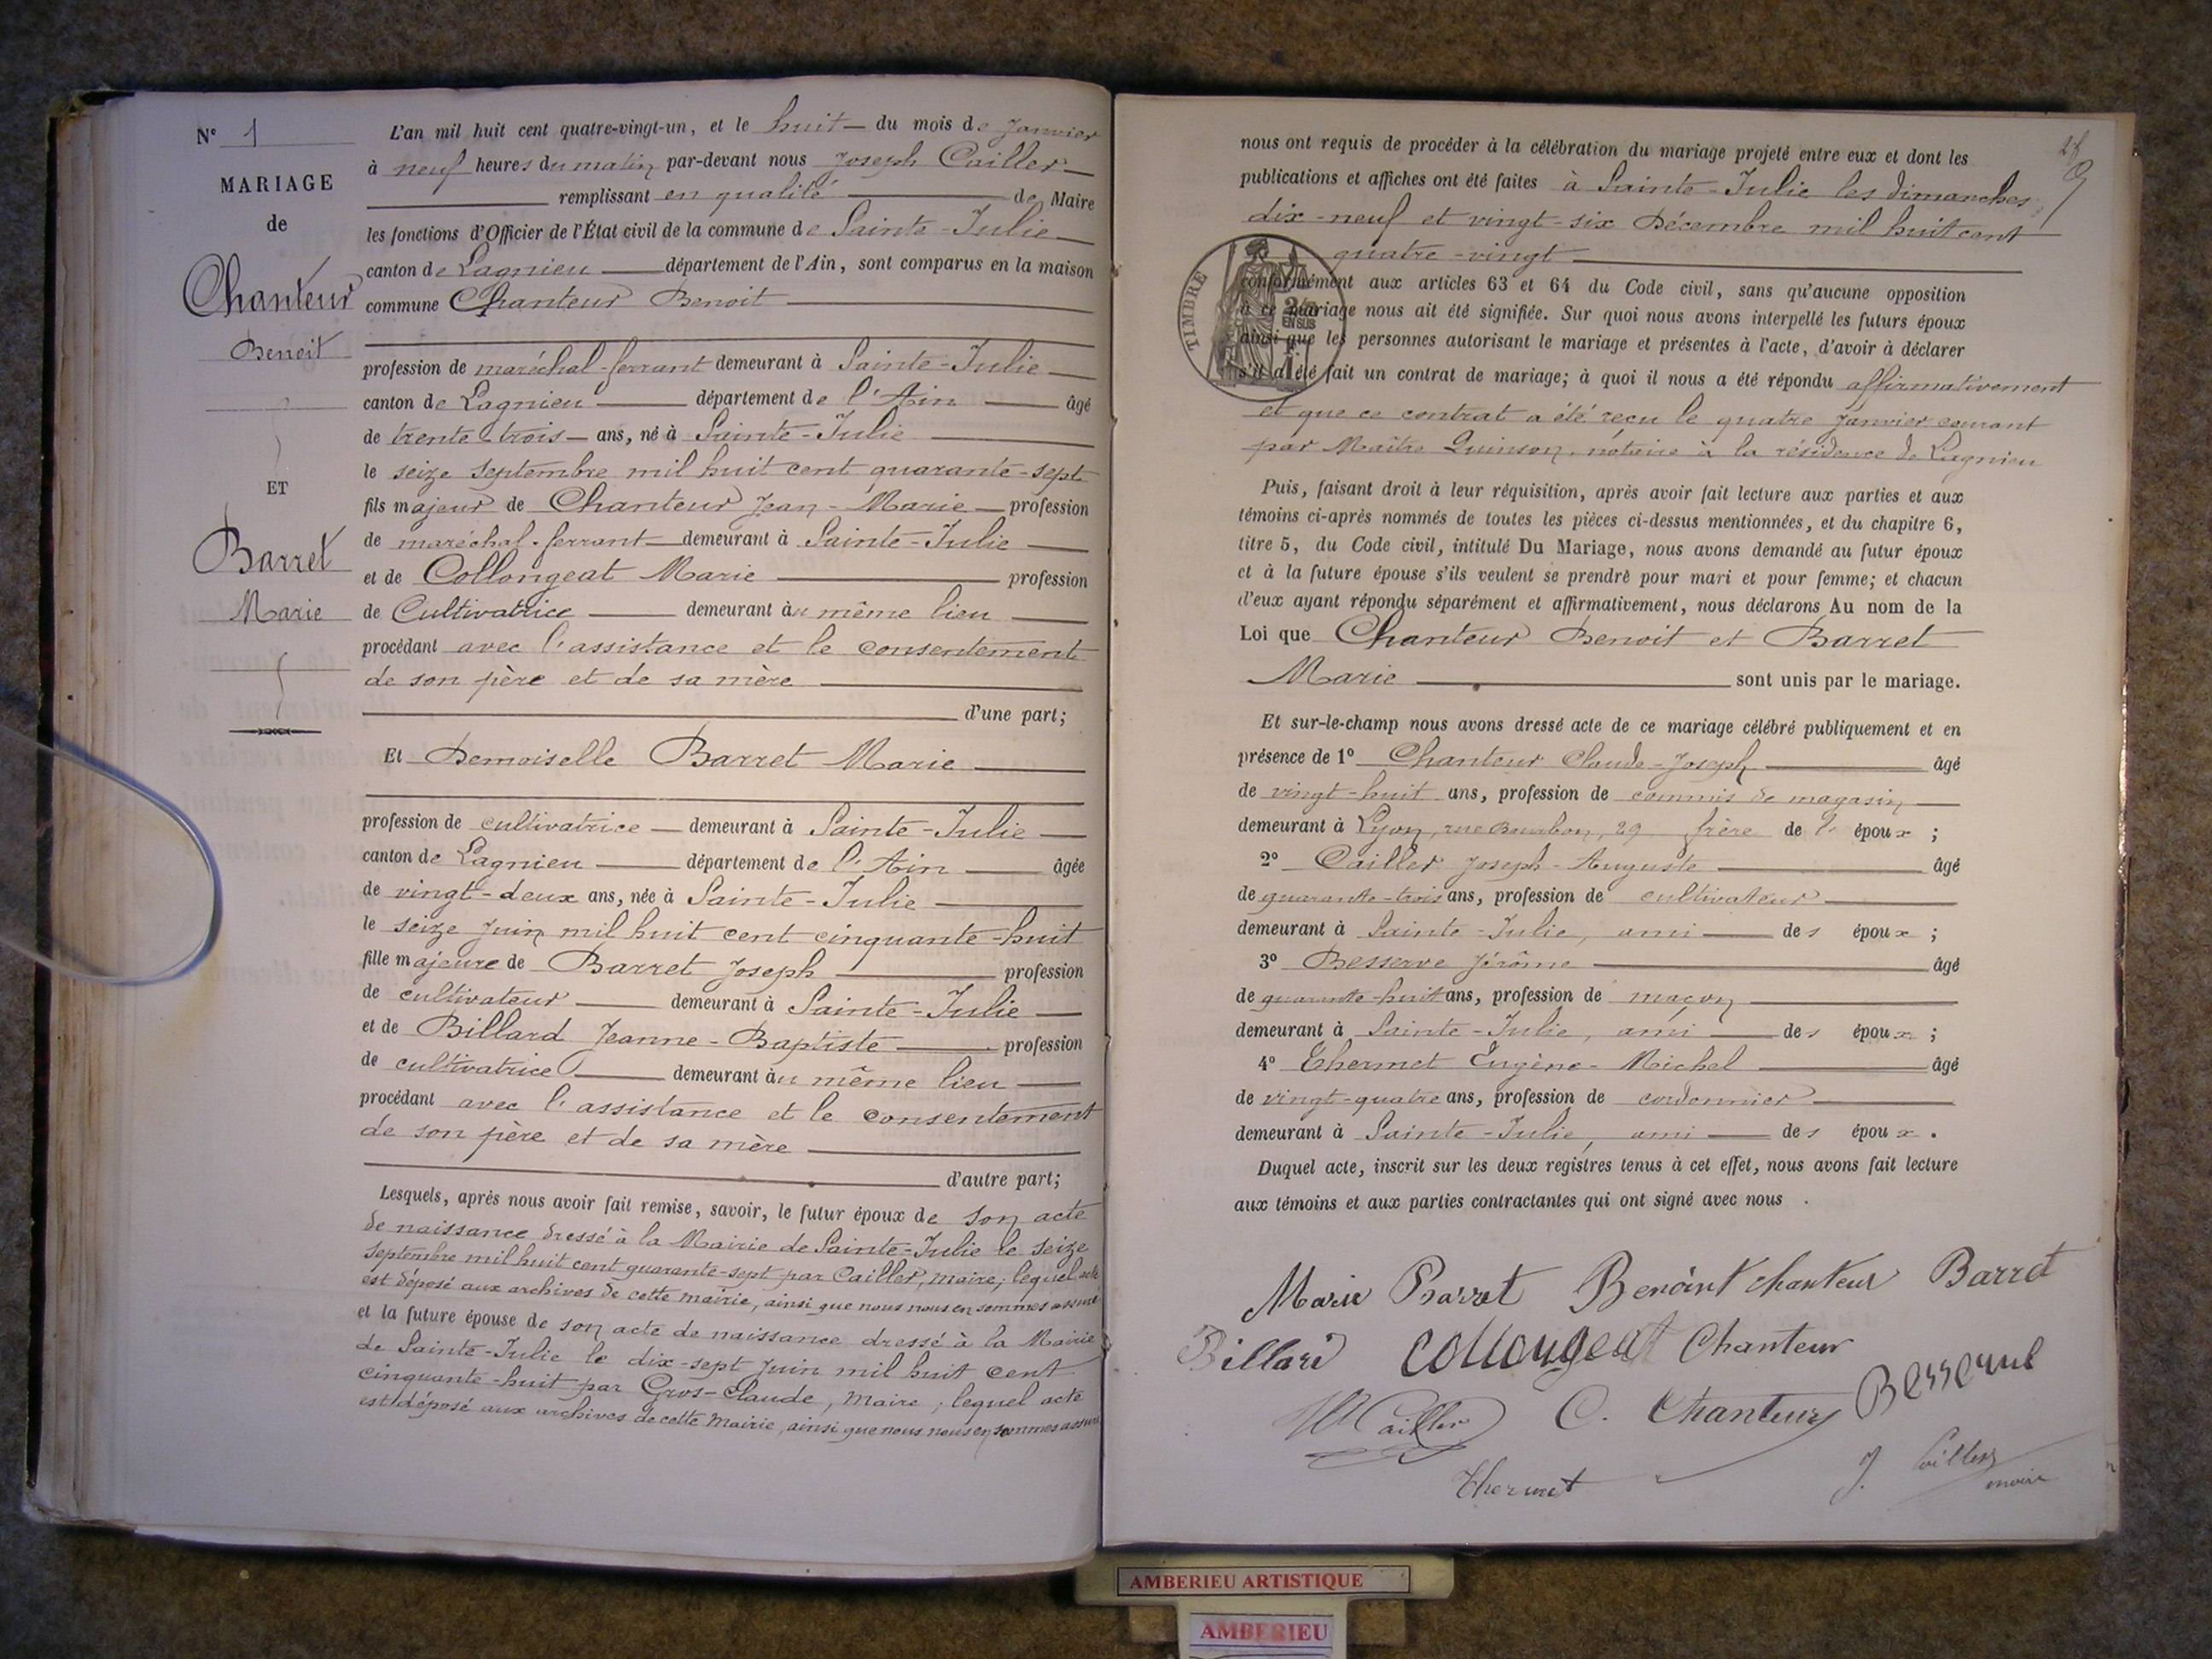 N° 1
MARIAGE
de
Chanteur
Benoit
ET
Barret
Marie
L'an mil huit cent quatre-vingt-un, et le huit du mois de Janvier
à neuf heures du matin par-devant nous Joseph Cailler
remplissant en qualité de Maire
les fonctions d'Officier de l'État civil de la commune de Sainte-Julie
canton de Lagnieu département de l'Ain, sont comparus en la maison
commune Chanteur Benoit
profession de maréchal-ferrant demeurant à Sainte-Julie
canton de Lagnieu département de l'Ain âgé
de trente-trois ans, né à Sainte-Julie
le seize Septembre mil huit cent quarante-sept
fils majeur de Chanteur Jean-Marie profession
de maréchal-ferrant demeurant à Sainte-Julie
et de Collongeat Marie profession
de Cultivatrice demeurant au même lieu
procédant avec l'assistance et le consentement
de son père et de sa mère
d'une part;
Et Demoiselle Barret Marie
profession de cultivatrice demeurant à Sainte-Julie
canton de Lagnieu département de l'Ain âgée
de vingt-deux ans, née à Sainte-Julie
le seize Juin mil huit cent cinquante-huit
fille majeure de Barret Joseph profession
de cultivateur demeurant à Sainte-Julie
et de Billard Jeanne-Baptiste profession
de cultivatrice demeurant au même lieu
procédant avec l'assistance et le consentement
de son père et de sa mère
d'autre part;
Lesquels, après nous avoir fait remise, savoir, le futur époux de son acte
de naissance dressé à la Mairie de Sainte-Julie le seize
Septembre mil huit cent quarante-sept par Cailler, maire; lequel acte
est déposé aux archives de cette mairie, ainsi que nous nous en sommes assuré
et la future épouse de son acte de naissance dressé à la Mairie
de Sainte-Julie le dix-sept Juin mil huit cent
cinquante-huit par Gros-Claude, Maire; lequel acte
est déposé aux archives de cette Mairie, ainsi que nous nous en sommes assuré
nous ont requis de procéder à la célébration du mariage projeté entre eux et dont les
publications et affiches ont été faites à Sainte-Julie les dimanches
dix-neuf et vingt-six Décembre mil huit cent
quatre-vingt
conformément aux articles 63 et 64 du Code civil, sans qu'aucune opposition
à ce mariage nous ait été signifiée. Sur quoi nous avons interpellé les futurs époux
ainsi que les personnes autorisant le mariage et présentes à l'acte, d'avoir à déclarer
s'il a été fait un contrat de mariage; à quoi il nous a été répondu affirmativement
et que ce contrat a été reçu le quatre Janvier courant
par Maître Quinson, notaire à la résidence de Lagnieu
TIMBRE
EN SUS
Puis, faisant droit à leur réquisition, après avoir fait lecture aux parties et aux
témoins ci-après nommés de toutes les pièces ci-dessus mentionnées, et du chapitre 6,
titre 5, du Code civil, intitulé Du Mariage, nous avons demandé au futur époux
et à la future épouse s'ils veulent se prendre pour mari et pour femme; et chacun
d'eux ayant répondu séparément et affirmativement, nous déclarons Au nom de la
Loi que Chanteur Benoit et Barret
Marie sont unis par le mariage.
Et sur-le-champ nous avons dressé acte de ce mariage célébré publiquement et en
présence de 1° Chanteur Claude-Joseph âgé
de vingt-huit ans, profession de commis de magasin
demeurant à Lyon, rue Bourbon, 29 frère de l' époux;
2° Cailler Joseph-Auguste âgé
de quarante-trois ans, profession de cultivateur
demeurant à Sainte-Julie, ami des époux;
3° Besserve Jérôme âgé
de quarante-huit ans, profession de maçon
demeurant à Sainte-Julie, ami des époux;
4° Thermet Eugène-Michel âgé
de vingt-quatre ans, profession de cordonnier
demeurant à Sainte-Julie, ami des époux.
Duquel acte, inscrit sur les deux registres tenus à cet effet, nous avons fait lecture
aux témoins et aux parties contractantes qui ont signé avec nous.
Marie Barret Benoint Chanteur Barret
Billard Collongeat Chanteur
Cailler C. Chanteur Besserve
Thermet J. Cailler
maire
AMBERIEU ARTISTIQUE
AMBERIEU